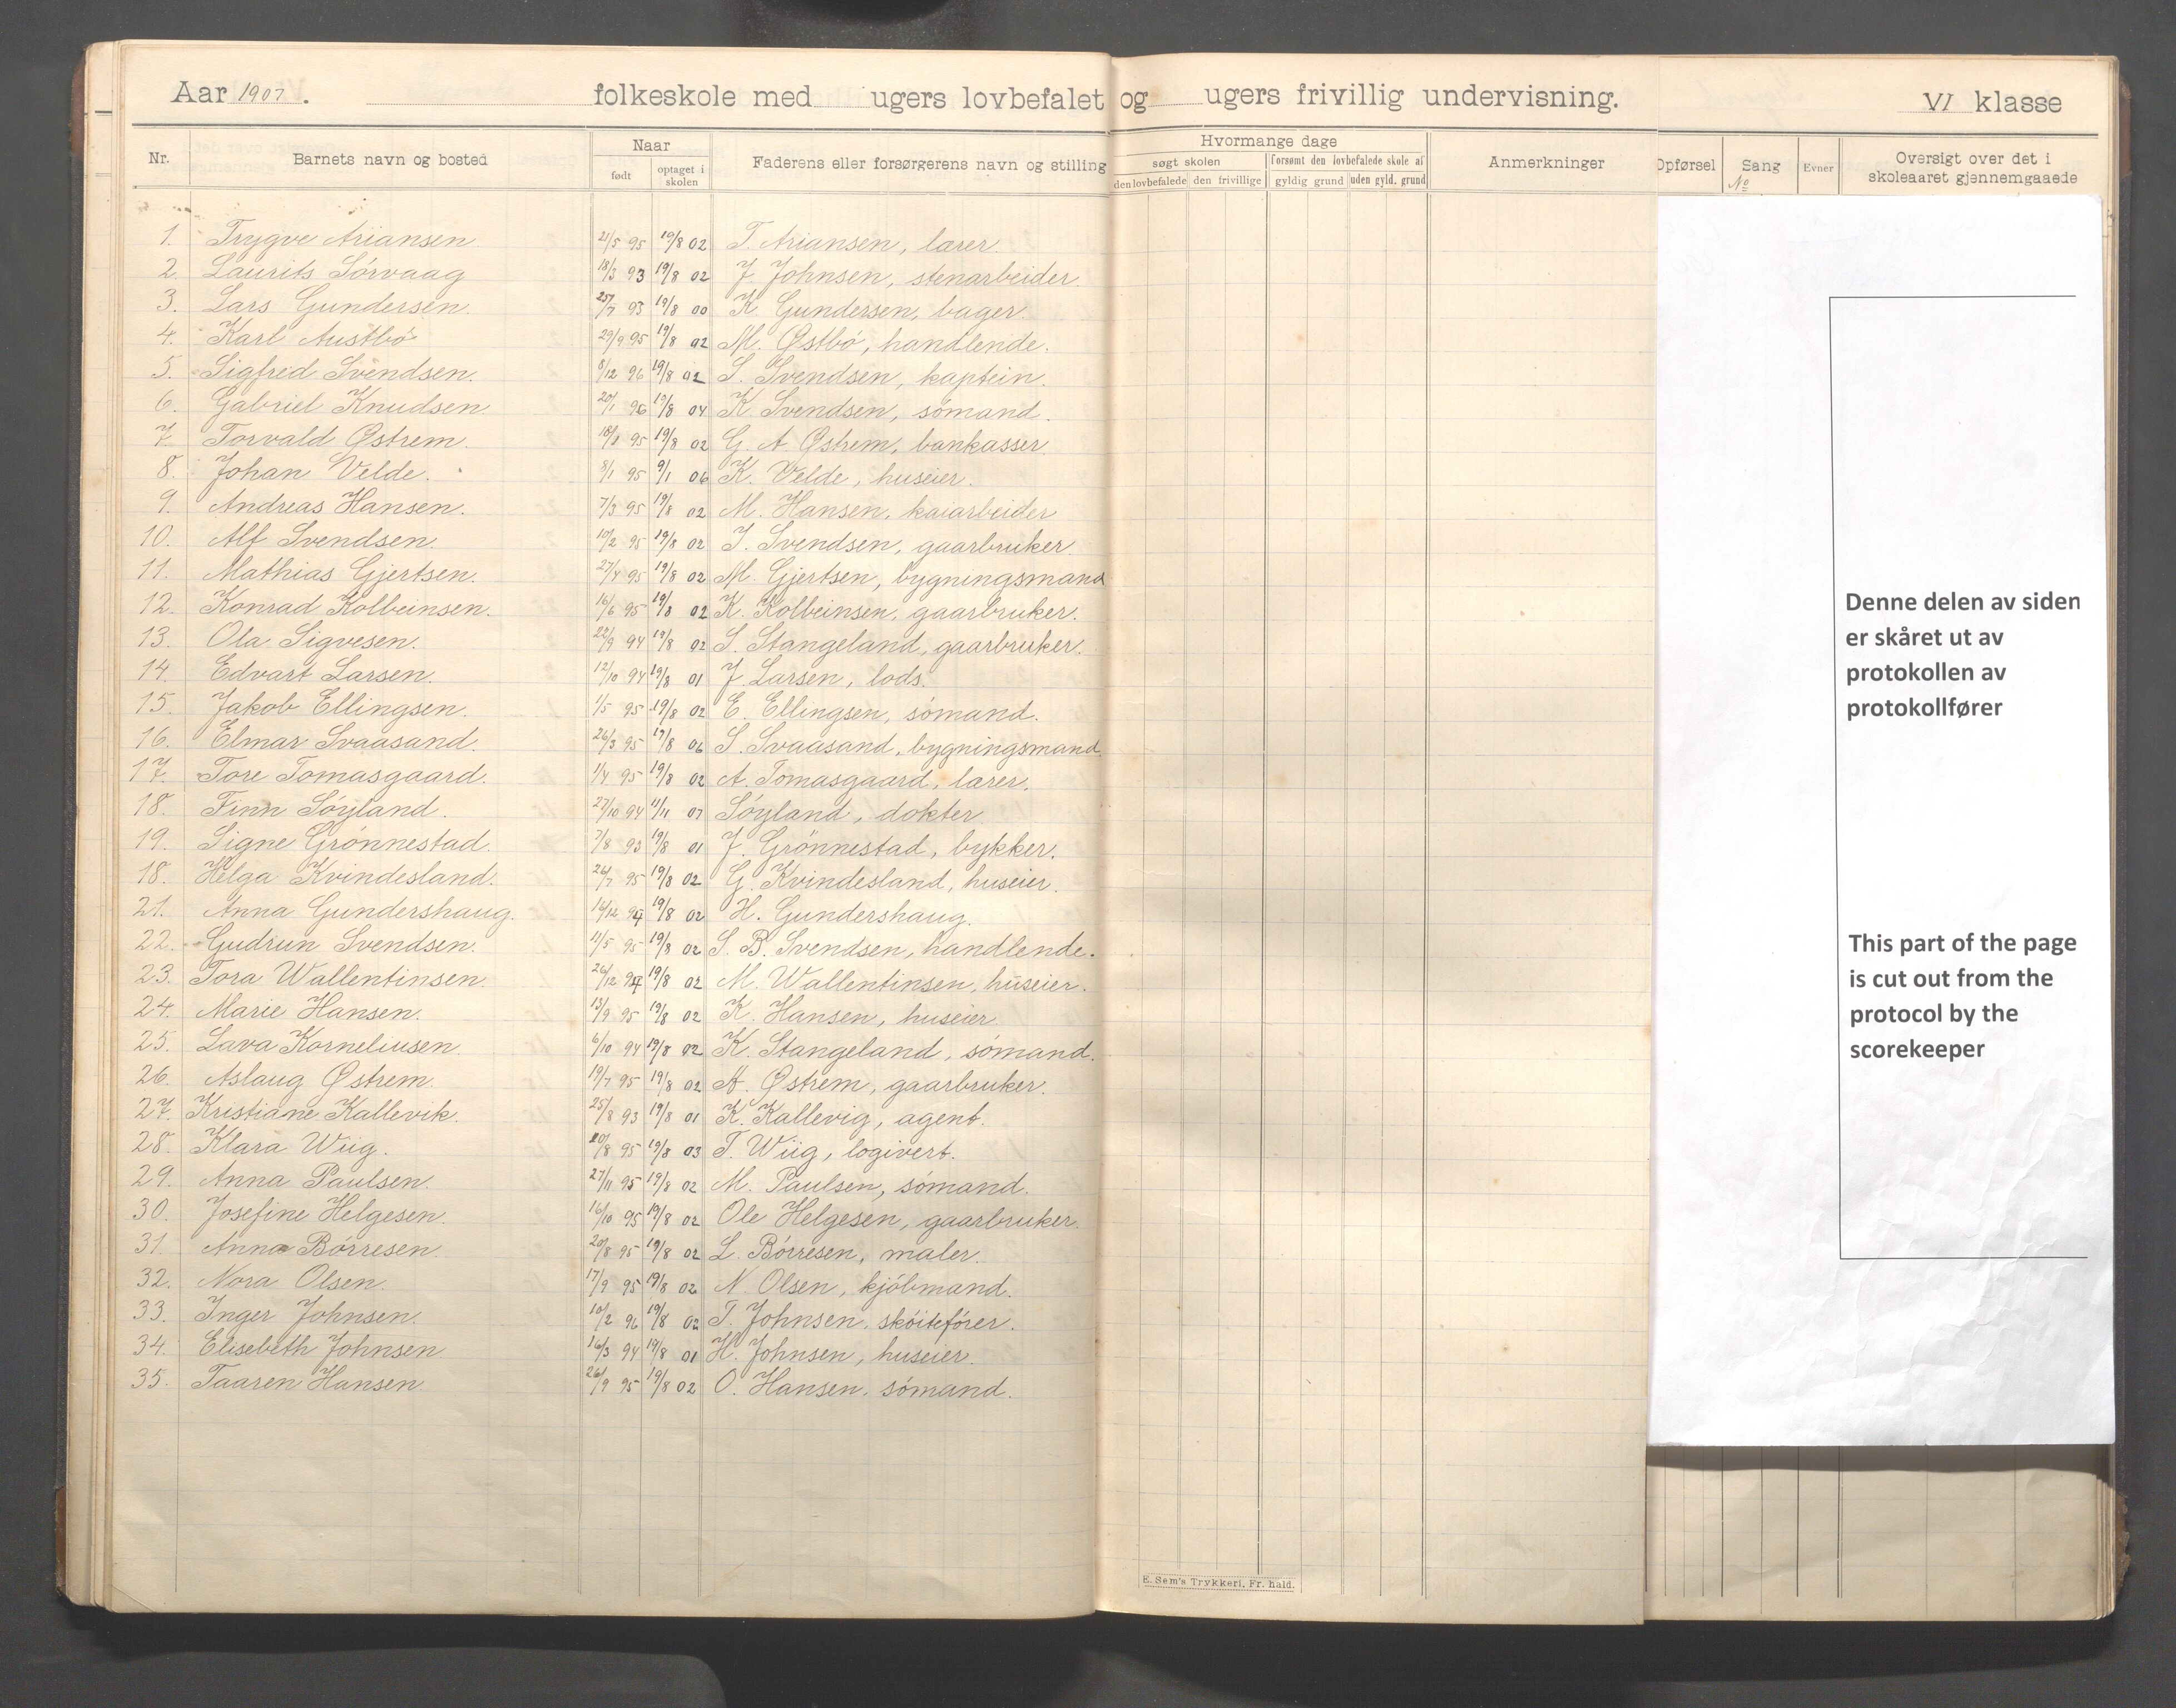 Aar 1907. folkeskole med ugers lovbefalet og ugers frivillig undervisning. VI klasse
Nr. Barnets navn og bosted Naar Faderens eller forsørgerens navn og stilling Hvormange dage Anmerkninger Opførsel Sang Evner Oversigt over det i skoleaaret gjennemgaaede
født optaget i skolen søgt skolen forsømt den lovbefalede skole af No
den lovbefalede den frivillige gyldig grund uden gyld. grund
1. Trygve Ariansen 21/5 95 19/8 02 T. Ariansen, lærer.
2. Laurits Sörvaag 18/3 93 19/8 02 J. Johnsen, stenarbeider.
3. Lars Gundersen. 25/7 93 19/8 00 K. Gundersen, bager.
4. Karl Austbö 29/9 95 19/8 02 M. Østbö, handlende.
5. Sigfred Svendsen. 8/12 96 19/8 02 S. Svendsen, kaptein.
6. Gabriel Knudsen 20/1 96 19/8 04 K. Svendsen, sömand.
7. Torvald Østrem. 18/8 95 19/8 02 G. A Østrem, bankasser
8. Johan Velde. 8/1 95 9/1 06 K. Velde, huseier.
9. Andreas Hansen. 7/3 95 19/8 02 M. Hansen, kaiarbeider
10. Alf Svendsen. 10/2 95 19/8 02 J. Svendsen, gaarbruker.
11. Mathias Gjertsen. 27/4 95 19/8 02 M. Gjertsen, bygningsmand
12. Konrad Kolbeinsen. 16/6 95 19/8 02 K. Kolbeinsen, gaarbruker.
13. Ola Sigvesen. 22/9 94 19/8 02 S. Stangeland, gaarbruker.
14. Edvart Larsen. 12/10 94 19/8 01 J. Larsen, lods.
15. Jakob Ellingsen. 1/5 95 19/8 02 E. Ellingsen, sömand.
16. Elmar Svaasand. 26/3 95 19/8 06 S. Svaasand, bygningsmand
17. Tore Tomasgaard. 1/4 95 19/8 02 A. Tomasgaard, lærer.
18. Finn Söyland. 27/10 94 11/11 07 Söyland, dokter.
19. Signe Grönnestad. 7/8 93 19/8 01 J. Grönnestad, bykker.
18. Helga Kvindesland. 26/7 95 19/8 02 G. Kvindesland, huseier.
21. Anna Gundershaug. 14/12 94 19/8 02 H. Gundershaug.
22. Gudrun Svendsen. 11/5 95 19/8 02 S. B. Svendsen, handlende.
23. Tora Wallentinsen 26/12 94 19/8 02 M. Wallentinsen, huseier.
24. Marie Hansen. 13/9 95 19/8 02 K. Hansen, huseier.
25. Lava Korneliusen. 6/10 94 19/8 02 K. Stangeland, sömand.
26. Aslaug Østrem. 19/7 95 19/8 02 A. Østrem, gaarbruker.
27. Kristiane Kallevik. 25/8 93 19/8 01 K. Kallevig, agent.
28. Klara Wiig. 20/8 95 19/8 03 T. Wiig, logivert.
29. Anna Paulsen. 27/11 95 19/8 02 M. Paulsen, sömand.
30. Josefine Helgesen. 16/10 95 19/8 02 Ole Helgesen, gaarbruker.
31. Anna Börresen. 20/8 95 19/8 02 L. Börresen, maler.
32. Nora Olsen. 17/9 95 19/8 02 N. Olsen, kjöbmand.
33. Inger Johnsen. 10/2 96 19/8 02 T. Johnsen, sköiteförer.
34. Elisebeth Johnsen 16/3 94 19/8 01 H. Johnsen, huseier.
35. Taaren Hansen 26/9 95 19/8 02 O. Hansen, sömand.
E. Sem's Trykkeri, Fr. hald.
Denne delen av siden
er skåret ut av
protokollen av
protokollfører
This part of the page
is cut out from the
protocol by the
scorekeeper